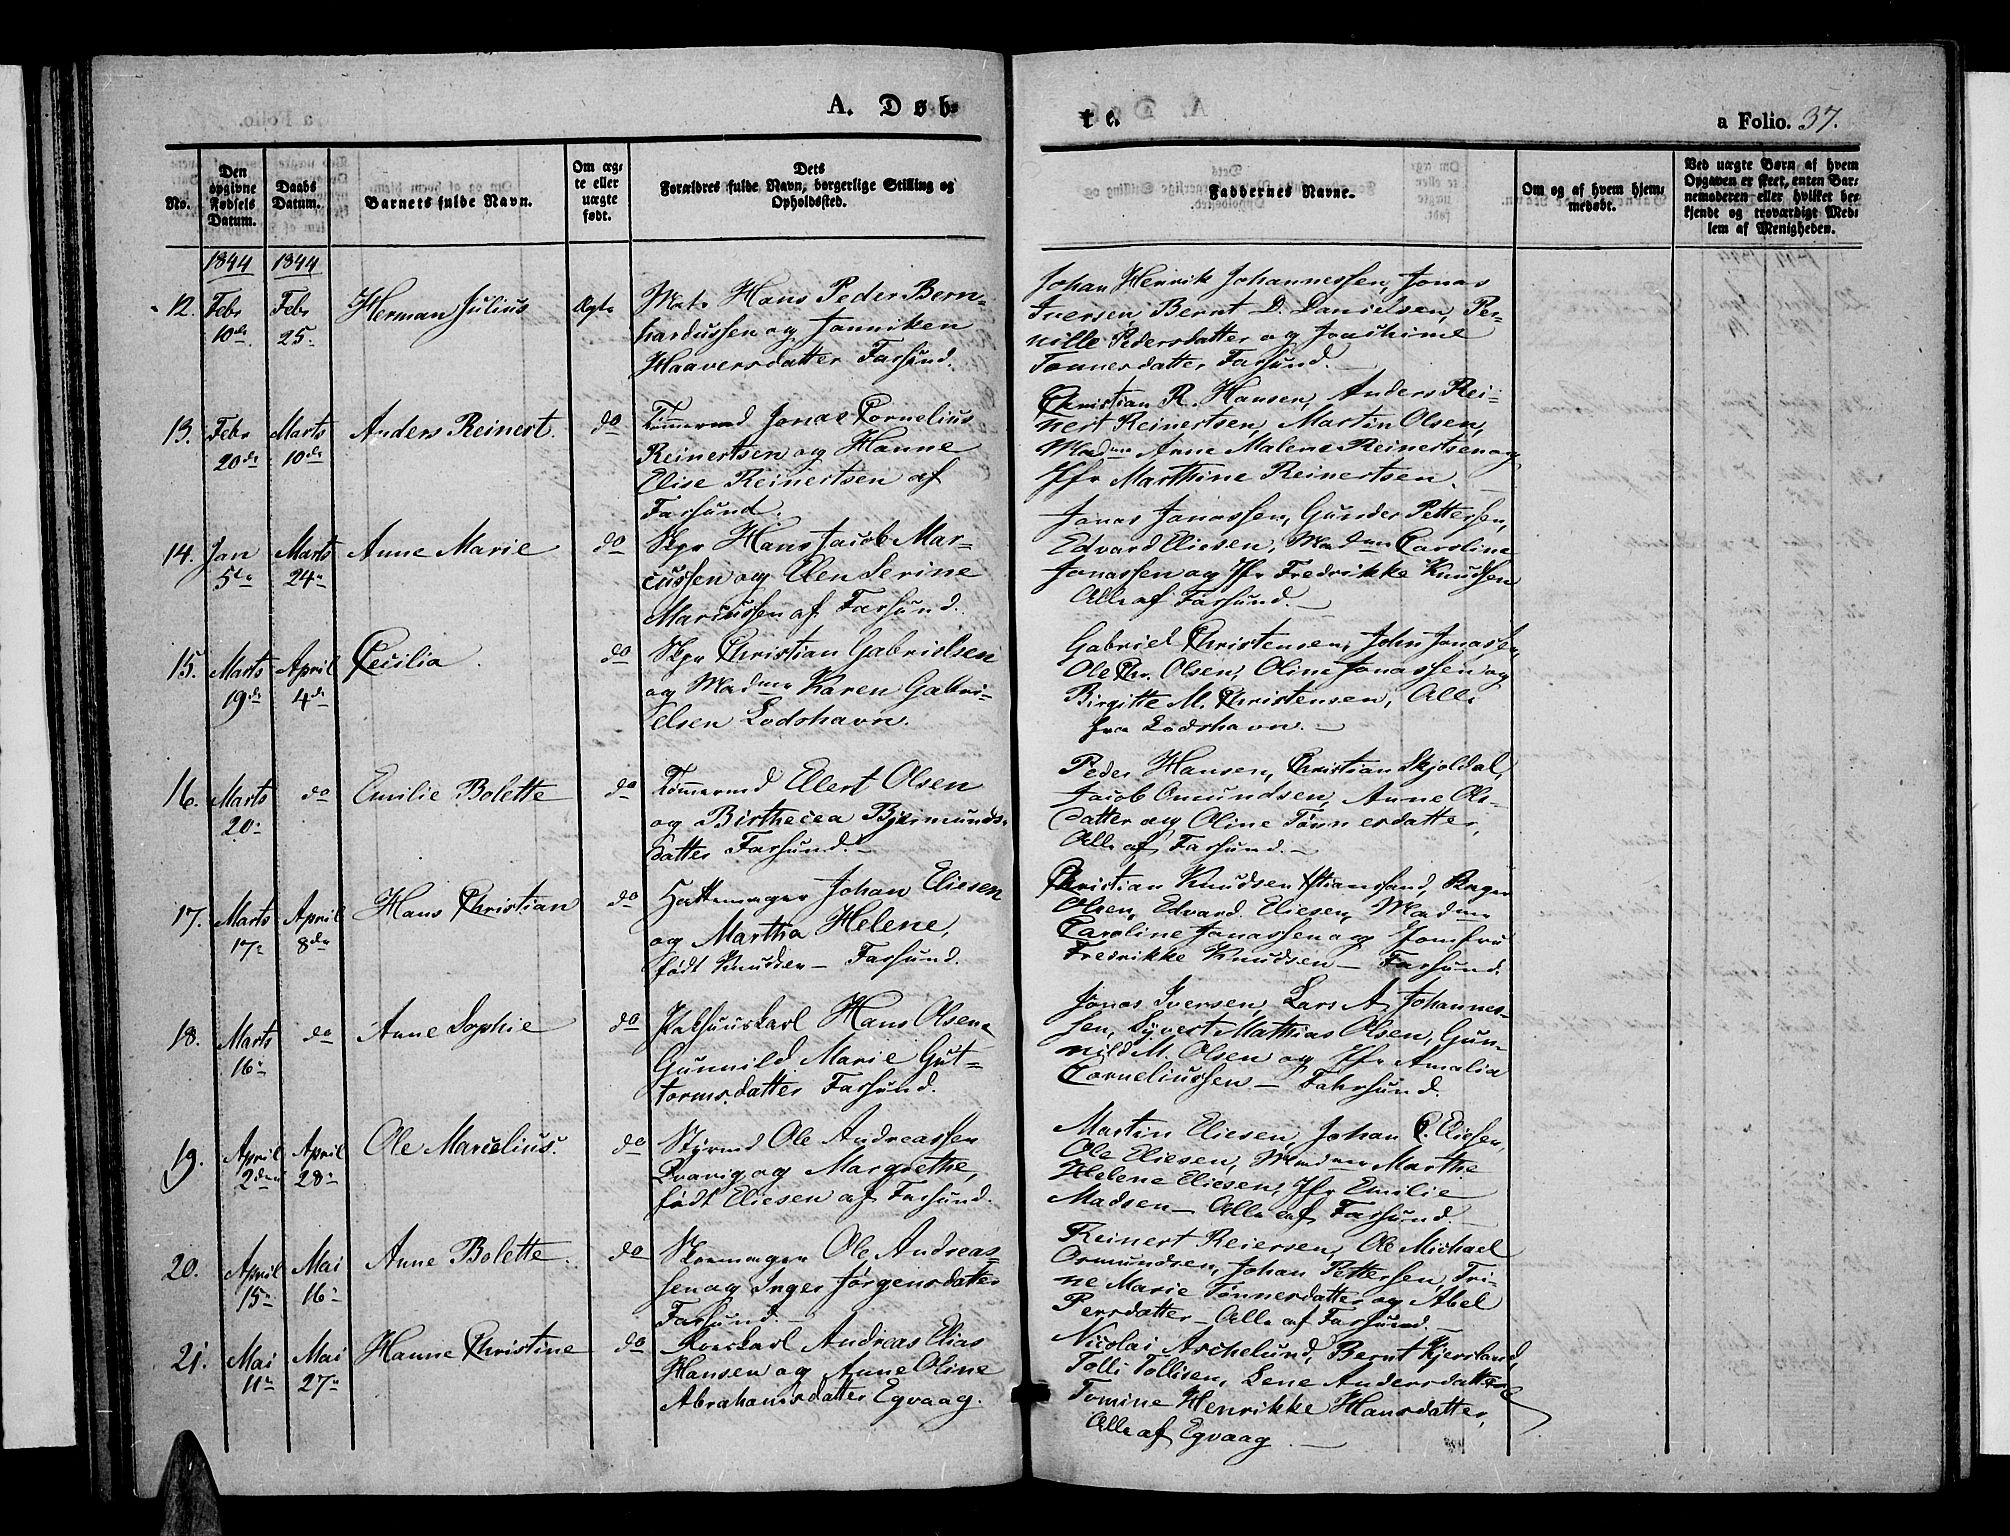 A. Døb-
te.
a Folio. 37.
No.
Den opgivne Fødsels Datum.
Daabs Datum.
Barnets fulde Navn.
Om ægte eller uægte født.
Dets Forældres fulde Navn, borgerlige Stilling og Opholdssted.
Faddernes Navne.
Om og af hvem hjemmedøbt.
Ved uægte Børn af hvem Opgaven er skeet, enten Barnemoderen eller hvilket bekjendt og troværdigt Medlem af Menigheden.
1844 1844
12. Febr 10de Febr 25. Herman Julius Ægte
Matr Hans Peder Bern-
hardussen og Jonniken
Haaversdatter Farsund.
Johan Henrik Johannessen, Jonas
Iversen, Bernt D. Danielsen, Per-
nille Pedersdatter og Joachime
Tønnesdatter Farsund.
13. Febr 20de Marts 10de Anders Reinert. do
Tømmermd Jonas Cornelius
Reinertsen og Hanne
Elise Reinertsen af
Farsund.
Christian R. Hansen, Anders Rei-
nert Reinertsen, Martin Olsen,
Madme Anne Malene Reinertsen og
Jfr Marthine Reinertsen.
14. Jan 5te Marts 24 Anne Marie do
Skpr Hans Jacob Mar-
cussen og Elen Serine
Marcussen af Farsund.
Jonas Jonassen, Gunder Pettersen,
Edvard Eliesen, Madme Caroline
Jonassen og Jfr Fredrikke Knudsen
Alle af Farsund.
15. Marts 19de April 4de Cecilia do
Skpr Christian Gabrielsen
og Madme Karen Gabri-
elsen Lodshavn.
Gabriel Christensen, John Jonassen,
Ole Chr. Olsen, Oline Jonassen og
Birgitte M. Christensen, Alle
fra Lodshavn.
16. Marts 20 do Emilie Bolette do
Tømmermd Elert Olsen
og Birthecea Bjermunds-
datter Farsund.
Peder Hansen, Christian Skjoldal,
Jacob Omundsen, Anne Ols-
datter og Oline Tønnesdatter,
Alle af Farsund.
17. Marts 17 April 8de Hans Christian do
Hattemager Johan Eliesen
og Martha Helene,
født Knudsen - Farsund.
Christian Knudsen Xstianssand,
Olsen, Edvard Eliesen, Madme
Caroline Jonassen og Jomfru
Fredrikke Knudsen - Farsund.
18. Marts 16 do Anne Sophie do
Pakhuuskarl Hans Olsen
Gunnild Marie Gut-
tormsdatter Farsund.
Jonas Iversen, Lars A. Johannes-
sen, Syvert Mathias Olsen, Gun-
nild M. Olsen og Jfr Amalia
Corneliussen - Fahrsund.
19. April 2den April 28 Ole Marcelius. do
Styrmd Ole Andreassen
Dvarig og Margrethe,
født Eliesen af Farsund.
Martin Eliesen, Johan C. Eliesen,
Ole Eliesen, Madme Marthe
Helene Eliesen, Jfr Emilie
Madsen - Alle af Farsund.
20. April 15 Mai 16 Anne Bolette. do
Skomager Ole Andreas-
sen og Inger Jørgensdatter
Farsund.
Reinert Reiersen, Ole Michael
Osmundsen, Johan Pettersen, Tri-
ne Marie Tønnesdatter og Abel
Persdatter - Alle af Farsund.
21. Mai 11 Mai 27 Hanne Christine do
Andreas Elias
Hansen og Anne Oline
Abrahamsdatter Egvaag.
Nicolai Aschelund, Bernt Kjersland,
Tolli Tollisen, Lene Andersdatter
Tomine Henrikke Hansdatter,
Alle af Egvaag